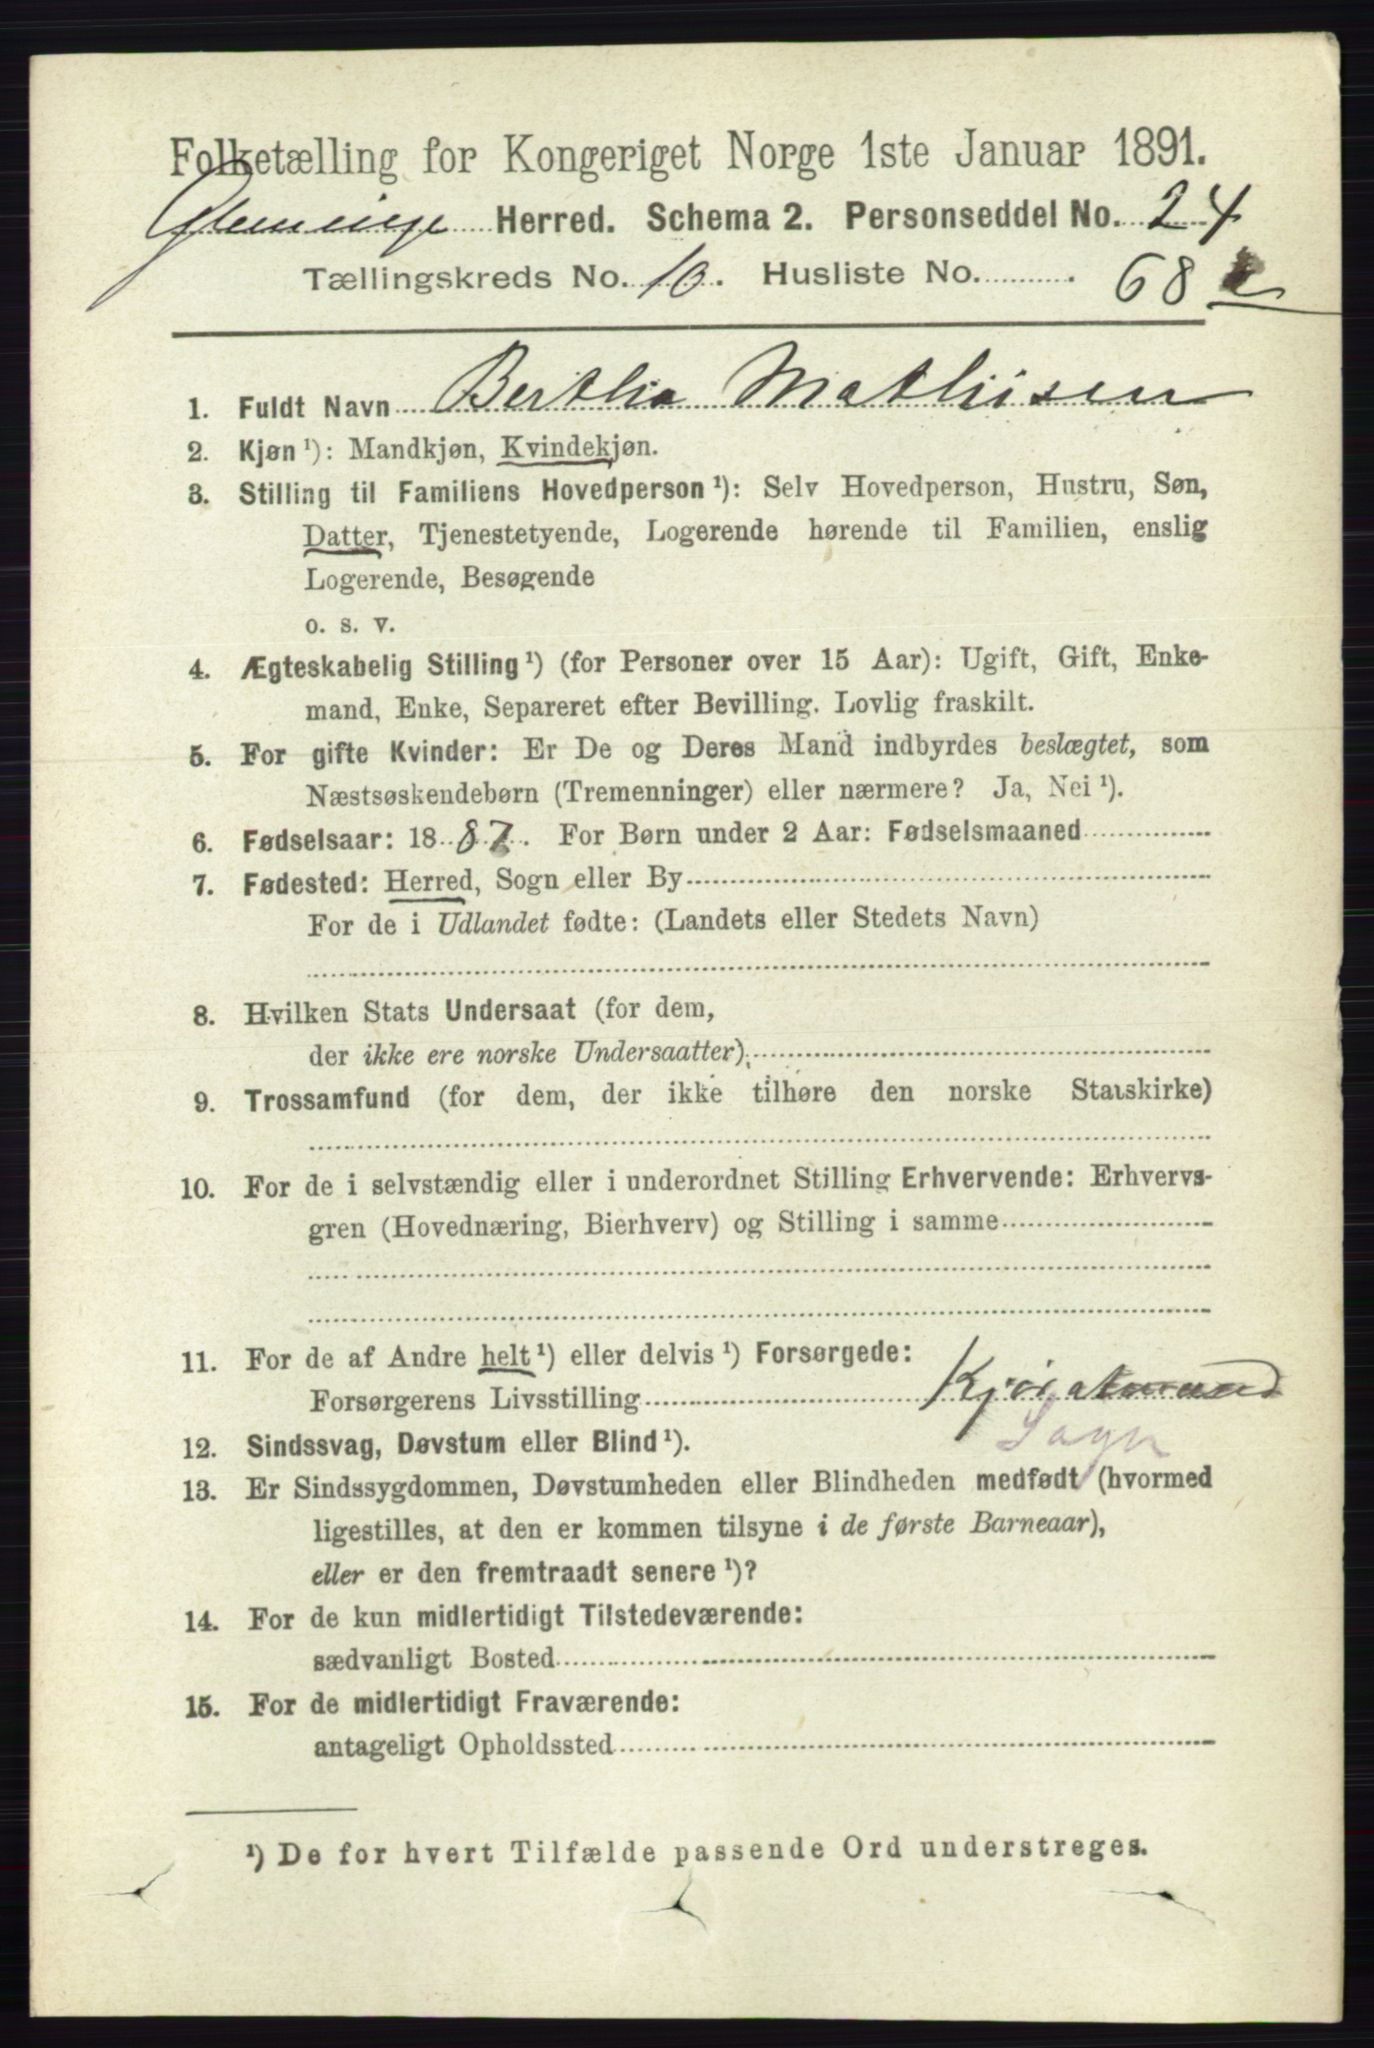 Folketælling for Kongeriget Norge 1ste Januar 1891.
Glemminge Herred. Schema 2. Personseddel No. 24
Tællingskreds No. 10. Husliste No. 68
1. Fuldt Navn Berthe Mathisen
2. Kjøn ¹): Mandkjøn, Kvindekjøn.
3. Stilling til Familiens Hovedperson ¹): Selv Hovedperson, Hustru, Søn,
Datter, Tjenestetyende, Logerende hørende til Familien, enslig
Logerende, Besøgende
o. s. v.
4. Ægteskabelig Stilling ¹) (for Personer over 15 Aar): Ugift, Gift, Enke-
mand, Enke, Separeret efter Bevilling. Lovlig fraskilt.
5. For gifte Kvinder: Er De og Deres Mand indbyrdes beslægtet, som
Næstsøskendebørn (Tremenninger) eller nærmere? Ja, Nei ¹).
6. Fødselsaar: 1887. For Børn under 2 Aar: Fødselsmaaned
7. Fødested: Herred, Sogn eller By
For de i Udlandet fødte: (Landets eller Stedets Navn)
8. Hvilken Stats Undersaat (for dem,
der ikke ere norske Undersaatter)
9. Trossamfund (for dem, der ikke tilhøre den norske Statskirke)
10. For de i selvstændig eller i underordnet Stilling Erhvervende: Erhvervs-
gren (Hovednæring, Bierhverv) og Stilling i samme
11. For de af Andre helt ¹) eller delvis ¹) Forsørgede:
Forsørgerens Livsstilling
12. Sindssvag, Døvstum eller Blind ¹).
13. Er Sindssygdommen, Døvstumheden eller Blindheden medfødt (hvormed
ligestilles, at den er kommen tilsyne i de første Barneaar),
eller er den fremtraadt senere ¹)?
14. For de kun midlertidigt Tilstedeværende:
sædvanligt Bosted
15. For de midlertidigt Fraværende:
antageligt Opholdssted
¹) De for hvert Tilfælde passende Ord understreges.